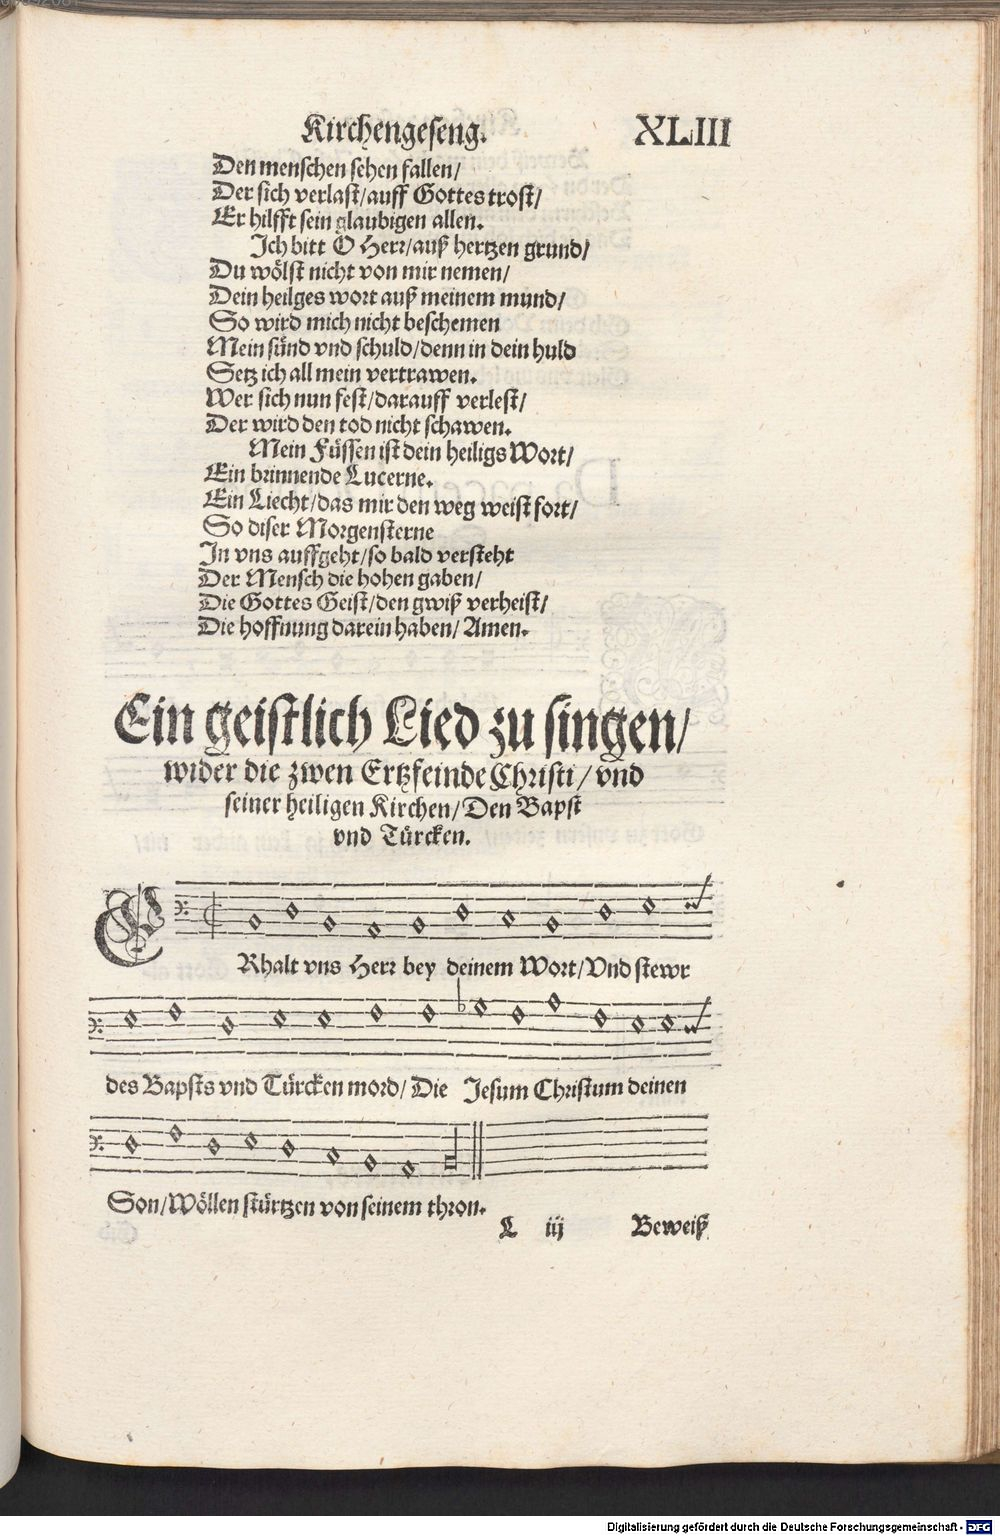 Kirchengeseng. XLIII
Den menschen sehen fallen/
Der sich verlast/auff Gottes trost/
Er hilfft sein glaubigen allen.
Ich bitt O Herr/auß hertzen grund/
Du wölst nicht von mir nemen/
Dein heilges wort auß meinem mund/
So wird mich nicht beschemen
Mein sünd vnd schuld/denn in dein huld
Setz ich all mein vertrawen.
Wer sich nun fest/darauff verlest/
Der wird den tod nicht schawen.
Mein Füssen ist dein heiligs Wort/
Ein brinnende Lucerne.
Ein Liecht/das mir den weg weist fort/
So diser Morgensterne
In vns auffgeht/so bald versteht
Der Mensch die hohen gaben/
Die Gottes Geist/den gwiß verheist/
Die hoffnung darein haben/ Amen.
Ein geistlich Lied zu singen/
wider die zwen Ertzfeinde Christi/ vnd
seiner heiligen Kirchen/ Den Bapst
vnd Türcken.
ERhalt vns Herr bey deinem Wort/ Vnd stewr
des Bapsts vnd Türcken mord/ Die Jesum Christum deinen
Son/Wöllen stürtzen von seinem thron.
L iij Beweiß
Digitalisierung gefördert durch die Deutsche Forschungsgemeinschaft - DFG